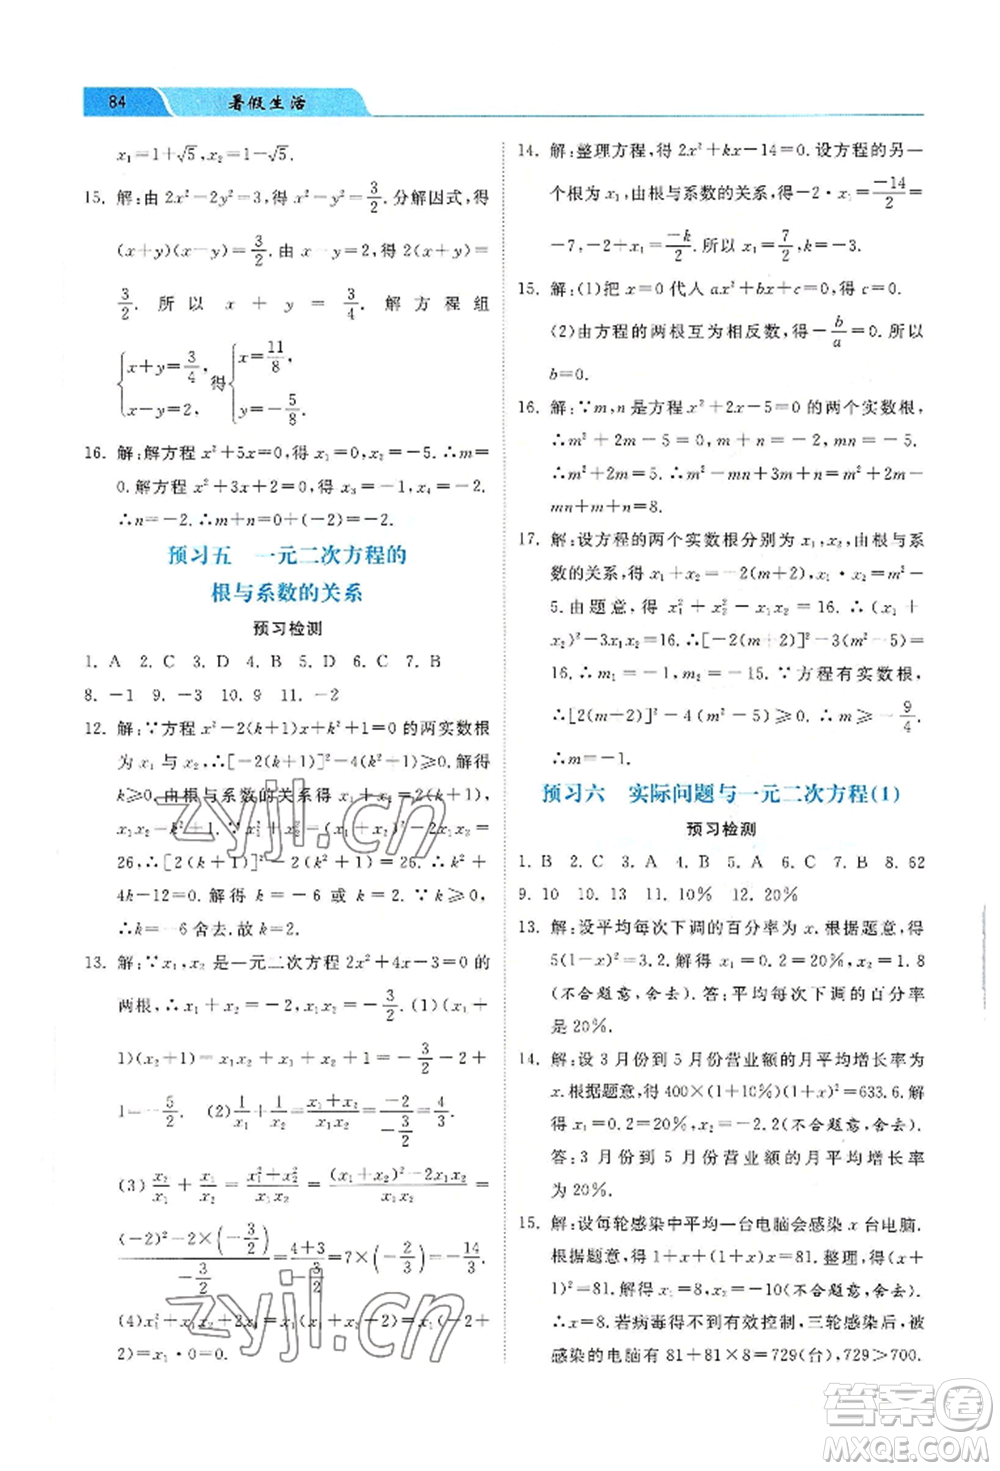 84 暑假生活
x₁=1+√5,x₂=1-√5.
15. 解:由 2x²-2y²=3,得 x²-y²=3/2.分解因式,得
(x+y)(x-y)=3/2.由 x-y=2,得 2(x+y)=
3/2. 所以 x+y=3/4. 解方程组
{x+y=3/4, x-y=2, 得 {x=11/8, y=-5/8.
16. 解:解方程 x²+5x=0,得 x₁=0,x₂=-5.∴m=
0.解方程 x²+3x+2=0,得 x₃=-1,x₄=-2.
∴n=-2.∴m+n=0+(-2)=-2.
预习五 一元二次方程的
根与系数的关系
预习检测
1. A 2. C 3. D 4. B 5. C 6. C 7. B
8. -1 9. -3 10. 9 11. -2
12. 解:∵方程 x²-2(k+1)x+k²-1=0 的两实数根
为 x₁ 与 x₂,∴[-2(k+1)]²-4(k²-1)≥0.∴k≥
-1.由根与系数的关系,得 x₁+x₂=2(k+1),
x₁x₂=k²-1.∵x₁²+x₂²=(x₁+x₂)²-2x₁x₂=
26,∴[2(k+1)]²-2(k²-1)=26.∴k²+
4k-12=0.解得 k=-6 或 k=2.∵k≥-1,
∴k=-6舍去.故 k=2.
13. 解:∵x₁,x₂ 是一元二次方程 2x²+4x-3=0 的
两根,∴x₁+x₂=-2,x₁x₂=-3/2.(1)(x₁+
1)(x₂+1)=x₁+x₂+x₁x₂+1=-2-3/2+
1=-5/2. (2)1/x₁+1/x₂=(x₁+x₂)/(x₁x₂)=(-2)/(-3/2)=4/3.
(3)x₂/x₁+x₁/x₂=(x₁²+x₂²)/(x₁x₂)=((x₁+x₂)²-2x₁x₂)/(x₁x₂)=
((-2)²-2×(-3/2))/(-3/2)=(4+3)/(-3/2)=7×(-2/3)=-14/3.
(4)x₁²+x₁x₂+2x₁=x₁(x₁+x₂+
2)=x₁·0=0.
14. 解:整理方程,得 2x²+kx-14=0.设方程的另一
个根为 x₁,由根与系数的关系,得-2·x₁=-14/2=
-7,-2+x₁=-k/2.所以 x₁=7/2,k=-3.
15. 解:(1)把 x=0 代人 ax²+bx+c=0,得 c=0.
(2)由方程的两根互为相反数,得-b/a=0.所以
b=0.
16. 解:∵m,n 是方程 x²+2x-5=0 的两个实数根,
∴m²+2m-5=0,m+n=-2,mn=-5.
∴m²=5-2m.∴m²-mn+3m+n=5-2m-
mn+3m+n=5+m+n-mn=5-2+5=
8.
17. 解:设方程的两个实数根分别为 x₁,x₂,由根与系
数的关系,得 x₁+x₂=-2(m+2),x₁x₂=m²-
5.由题意,得 x₁²+x₂²-x₁x₂=16.∴(x₁+
x₂)²-3x₁x₂=16.∴[-2(m+2)]²-3(m²-5)=
16.∴m₁=-1,m₂=-15.∵方程有实数根,
∴[2(m+2)]²-4(m²-5)≥0.∴m≥-9/4.
∴m=-1.
预习六 实际问题与一元二次方程(1)
预习检测
1. B 2. C 3. A 4. B 5. A 6. C 7. B 8. 62
9. 10 10. 13 11. 10% 12. 20%
13. 解:设平均每次下调的百分率为 x.根据题意,得
5(1-x)²=3.2.解得 x₁=0.2=20%,x₂=1.8
(不合题意,舍去).答:平均每次下调的百分率
是20%.
14. 解:设 3 月份到 5 月份营业额的月平均增长率为
x.根据题意,得 400×(1+10%)(1+x)²=633.6.解
得 x₁=0.2=20%,x₂=-2.2(不合题意,舍去).
答:3 月份到 5 月份营业额的月平均增长率
为 20%.
15. 解:设每轮感染中平均一台电脑会感染 x 台电脑.
根据题意,得 1+x+(1+x)x=81.整理,得(1+
x)²=81.解得 x₁=8,x₂=-10(不合题意,舍去).
∴x=8.若病毒得不到有效控制,三轮感染后,被
感染的电脑有 81+81×8=729(台),729>700.
zyjl.cn
zyjl.cn
答案圈
MXQE.COM